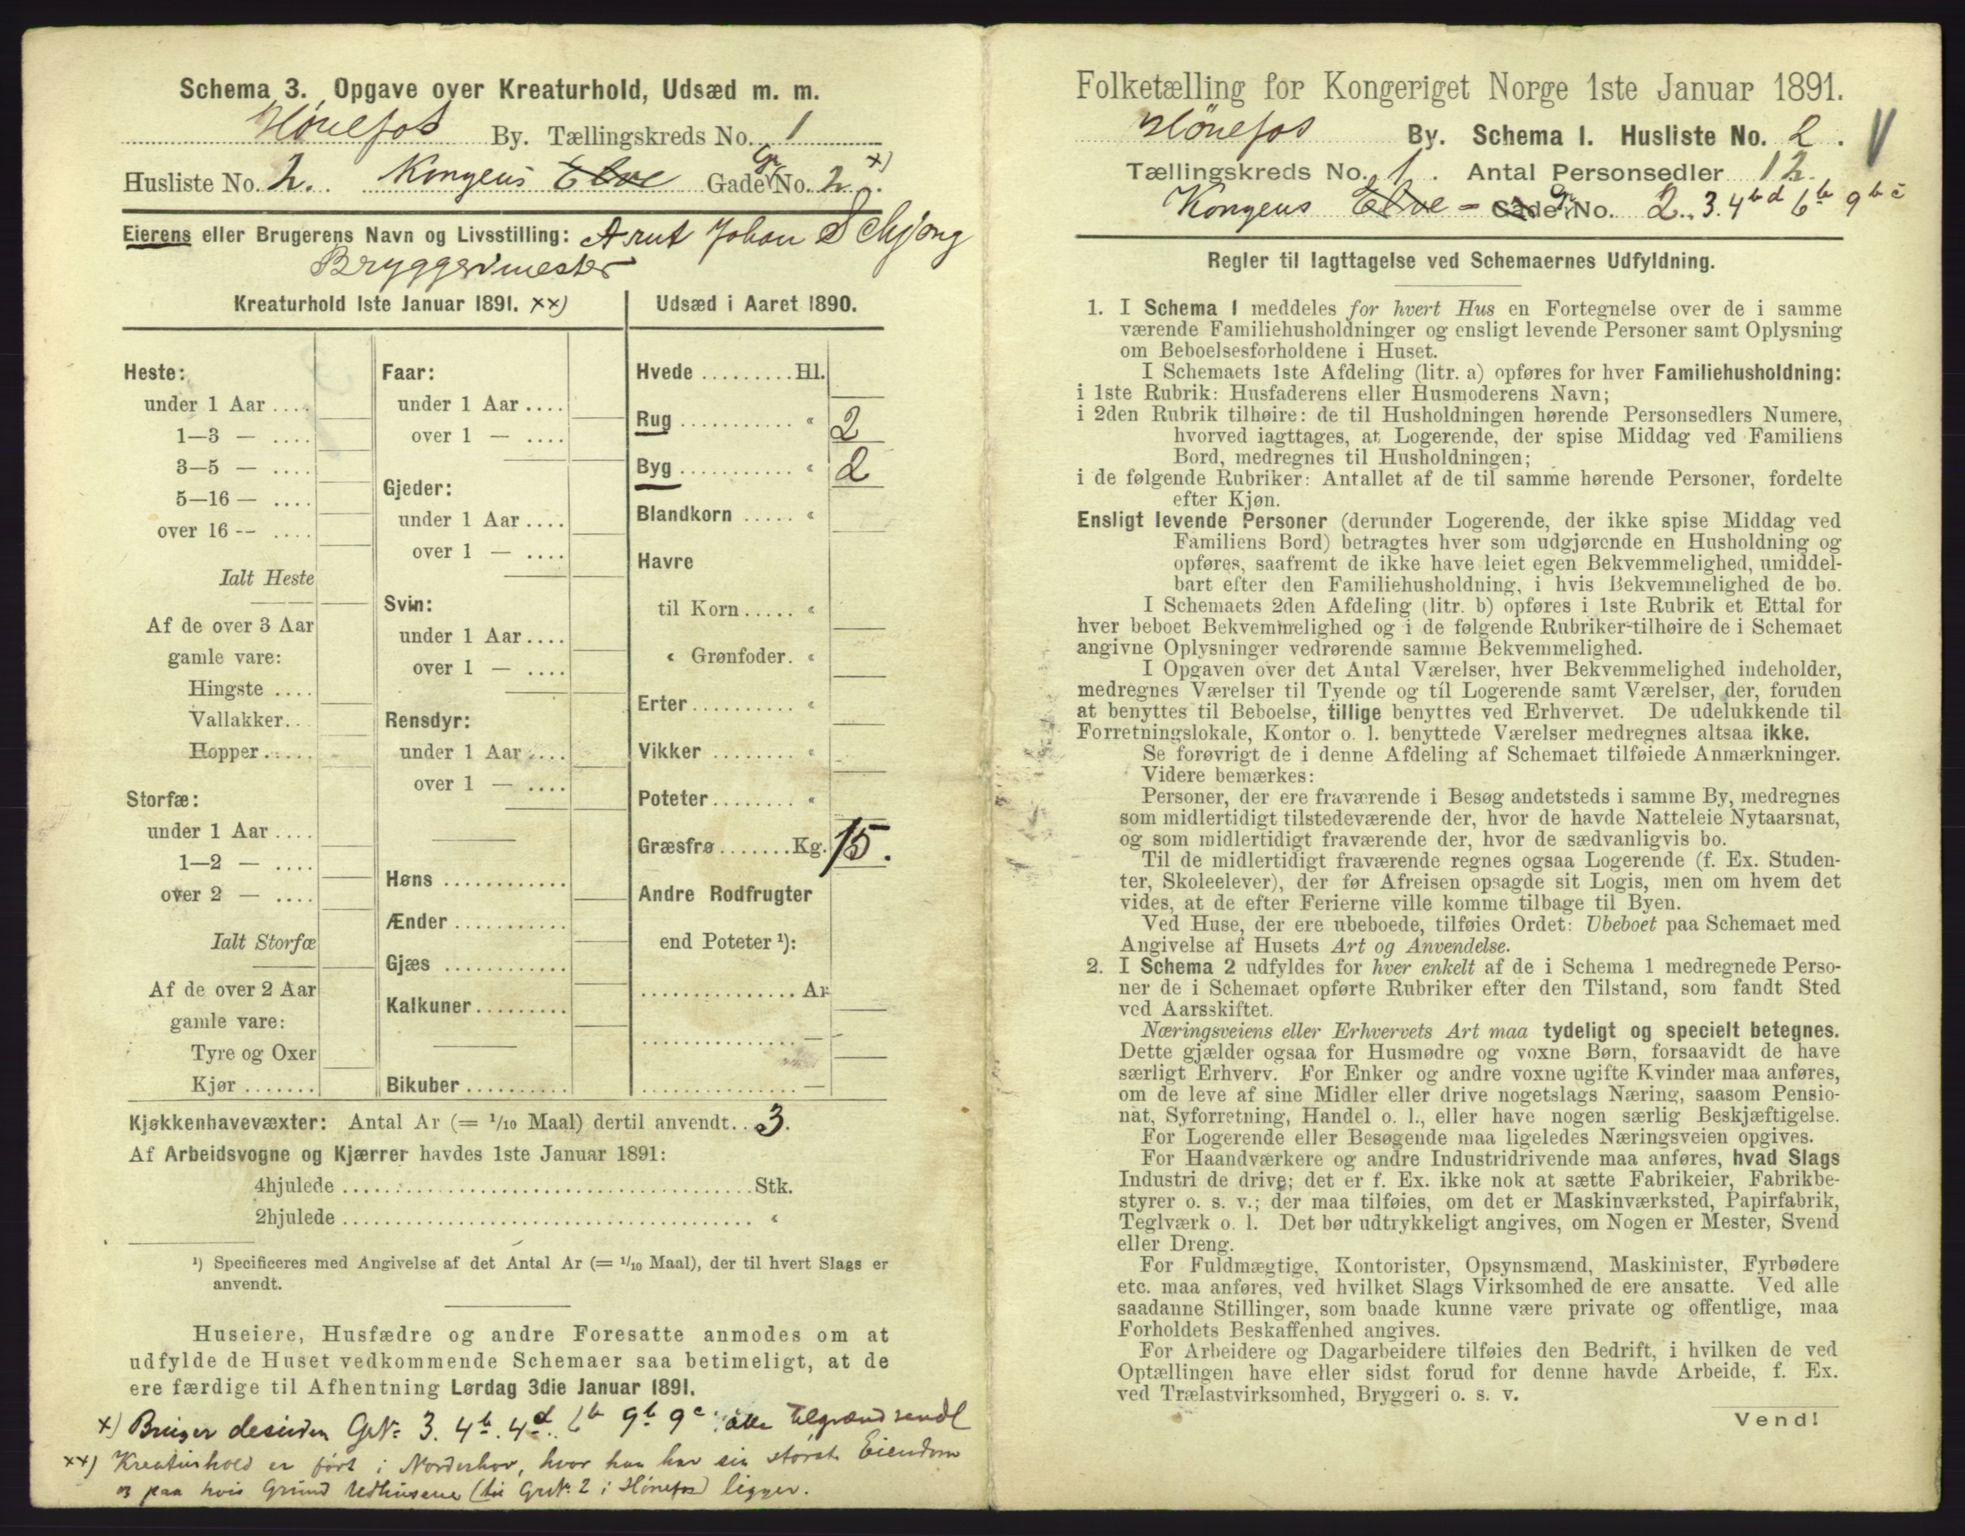 Schema 3. Opgave over Kreaturhold, Udsæd m. m.
Hønefos By. Tællingskreds No. 1
Husliste No. 2. Kongens Elve Gade Gr No. 2 x)
Eierens eller Brugerens Navn og Livsstilling: Arnt Johan Schjong
Bryggerimester
Kreaturhold 1ste Januar 1891. xx)
Heste:
under 1 Aar ....
1—3 — ....
3—5 — ....
5—16 — ....
over 16 — ....
Ialt Heste
Af de over 3 Aar
gamle vare:
Hingste ....
Vallakker...
Hopper.....
Storfæ:
under 1 Aar ....
1—2 — ....
over 2 — ....
Ialt Storfæ
Af de over 2 Aar
gamle vare:
Tyre og Oxer
Kjør .......
Faar:
under 1 Aar ....
over 1 — ....
Gjeder:
under 1 Aar ....
over 1 — ....
Svin:
under 1 Aar ....
over 1 — ....
Rensdyr:
under 1 Aar ....
over 1 — ....
Høns ............
Ænder ...........
Gjæs ............
Kalkuner.........
Bikuber ..........
Udsæd i Aaret 1890.
Hvede .........Hl.
Rug ........... « 2
Byg ........... « 2
Blandkorn ..... «
Havre
til Korn ..... «
« Grønfoder. «
Erter.......... «
Vikker ........ «
Poteter........ «
Græsfrø.......Kg. 15.
Andre Rodfrugter
end Poteter ¹):
............... Ar
............... —
............... —
Kjøkkenhavevæxter: Antal Ar (= 1/10 Maal) dertil anvendt.. 3.
Af Arbeidsvogne og Kjærrer havdes 1ste Januar 1891:
4hjulede ........................................ Stk.
2hjulede ........................................ «
¹) Specificeres med Angivelse af det Antal Ar (= 1/10 Maal), der til hvert Slags er
anvendt.
Huseiere, Husfædre og andre Foresatte anmodes om at
udfylde de Huset vedkommende Schemaer saa betimeligt, at de
ere færdige til Afhentning Lørdag 3die Januar 1891.
x) Bruger desuden GrNo 3. 4b. 4d. 6b 9b 9c
xx) Kreaturhold er ført i Norderhov, hvor han har sin største Eiendom
og paa hvis Grund Udhusene (til GrNo. 2 i Hønefos) ligger.
Folketælling for Kongeriget Norge 1ste Januar 1891.
Hønefos By. Schema 1. Husliste No. 2. V
Tællingskreds No. 1. Antal Personsedler 12.
Kongens Elve - Gade Gr No. 2. 3. 4 b d 6 b 9 b c
Regler til Iagttagelse ved Schemaernes Udfyldning.
1. I Schema 1 meddeles for hvert Hus en Fortegnelse over de i samme
værende Familiehusholdninger og ensligt levende Personer samt Oplysning
om Beboelsesforholdene i Huset.
I Schemaets 1ste Afdeling (litr. a) opføres for hver Familiehusholdning:
i 1ste Rubrik: Husfaderens eller Husmoderens Navn;
i 2den Rubrik tilhøire: de til Husholdningen hørende Personsedlers Numere,
hvorved iagttages, at Logerende, der spise Middag ved Familiens
Bord, medregnes til Husholdningen;
i de følgende Rubriker: Antallet af de til samme hørende Personer, fordelte
efter Kjøn.
Ensligt levende Personer (derunder Logerende, der ikke spise Middag ved
Familiens Bord) betragtes hver som udgjørende en Husholdning og
opføres, saafremt de ikke have leiet egen Bekvemmelighed, umiddel-
bart efter den Familiehusholdning, i hvis Bekvemmelighed de bo.
I Schemaets 2den Afdeling (litr. b) opføres i 1ste Rubrik et Ettal for
hver beboet Bekvemmelighed og i de følgende Rubriker tilhøire de i Schemaet
angivne Oplysninger vedrørende samme Bekvemmelighed.
I Opgaven over det Antal Værelser, hver Bekvemmelighed indeholder,
medregnes Værelser til Tyende og til Logerende samt Værelser, der, foruden
at benyttes til Beboelse, tillige benyttes ved Erhvervet. De udelukkende til
Forretningslokale, Kontor o. l. benyttede Værelser medregnes altsaa ikke.
Se forøvrigt de i denne Afdeling af Schemaet tilføiede Anmærkninger.
Videre bemærkes:
Personer, der ere fraværende i Besøg andetsteds i samme By, medregnes
som midlertidigt tilstedeværende der, hvor de havde Natteleie Nytaarsnat,
og som midlertidigt fraværende der, hvor de sædvanligvis bo.
Til de midlertidigt fraværende regnes ogsaa Logerende (f. Ex. Studen-
ter, Skoleelever), der før Afreisen opsagde sit Logis, men om hvem det
vides, at de efter Ferierne ville komme tilbage til Byen.
Ved Huse, der ere ubeboede, tilføies Ordet: Ubeboet paa Schemaet med
Angivelse af Husets Art og Anvendelse.
2. I Schema 2 udfyldes for hver enkelt af de i Schema 1 medregnede Perso-
ner de i Schemaet opførte Rubriker efter den Tilstand, som fandt Sted
ved Aarsskiftet.
Næringsveiens eller Erhvervets Art maa tydeligt og specielt betegnes.
Dette gjælder ogsaa for Husmødre og voxne Børn, forsaavidt de have
særligt Erhverv. For Enker og andre voxne ugifte Kvinder maa anføres,
om de leve af sine Midler eller drive nogetslags Næring, saasom Pensio-
nat, Syforretning, Handel o. l., eller have nogen særlig Beskjæftigelse.
For Logerende eller Besøgende maa ligeledes Næringsveien opgives.
For Haandværkere og andre Industridrivende maa anføres, hvad Slags
Industri de drive; det er f. Ex. ikke nok at sætte Fabrikeier, Fabrikbe-
styrer o. s. v.; der maa tilføies, om det er Maskinværksted, Papirfabrik,
Teglværk o. l. Det bør udtrykkeligt angives, om Nogen er Mester, Svend
eller Dreng.
For Fuldmægtige, Kontorister, Opsynsmænd, Maskinister, Fyrbødere
etc. maa anføres, ved hvilket Slags Virksomhed de ere ansatte. Ved alle
saadanne Stillinger, som baade kunne være private og offentlige, maa
Forholdets Beskaffenhed angives.
For Arbeidere og Dagarbeidere tilføies den Bedrift, i hvilken de ved
Optællingen have eller sidst forud for denne havde Arbeide, f. Ex.
ved Trælastvirksomhed, Bryggeri o. s. v.
Vend!